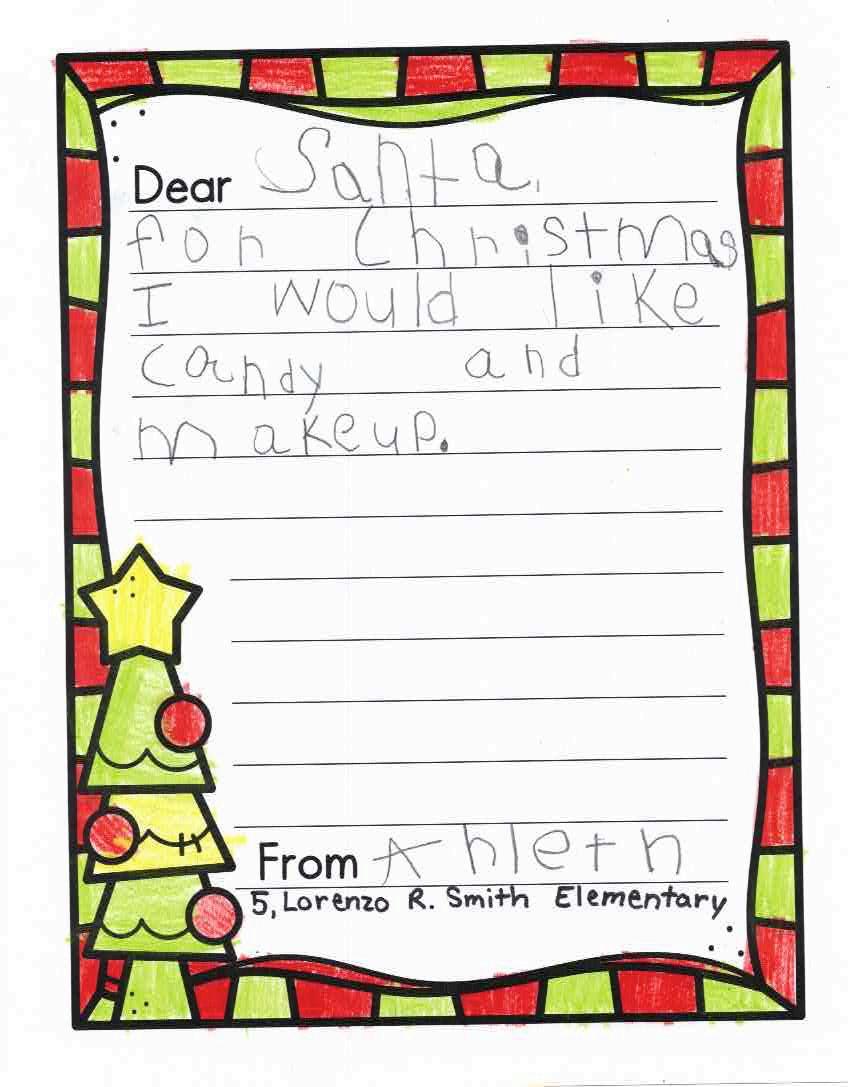 Dear Santa,
for Christmas
I would like
candy and
makeup.
From
5, Lorenzo R. Smith Elementary